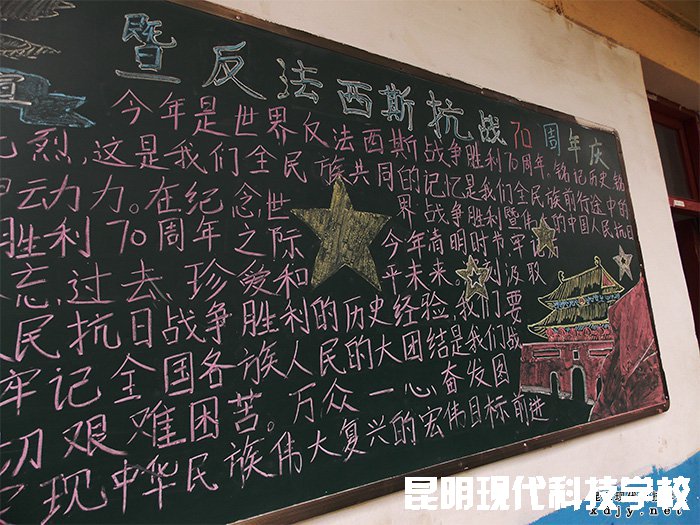 暨反法西斯抗战70周年庆
宣
今年是世界反法西斯战争胜利70周年。铭记历史、
烈,这是我们全民族共同的记忆是我们全民族前行途中的
动力。在纪念世界战争胜利暨伟大的中国人民抗日
胜利70周年之际今年清明时节,牢
忘过去珍爱和平未来。深刻汲取
人民抗日战争胜利的历史经验,我们要
牢记全国各族人民的大团结是我们战
切艰难困苦。万众一心奋发图
实现中华民族伟大复兴的宏伟目标前进
昆明现代科技学校
xdjy.net